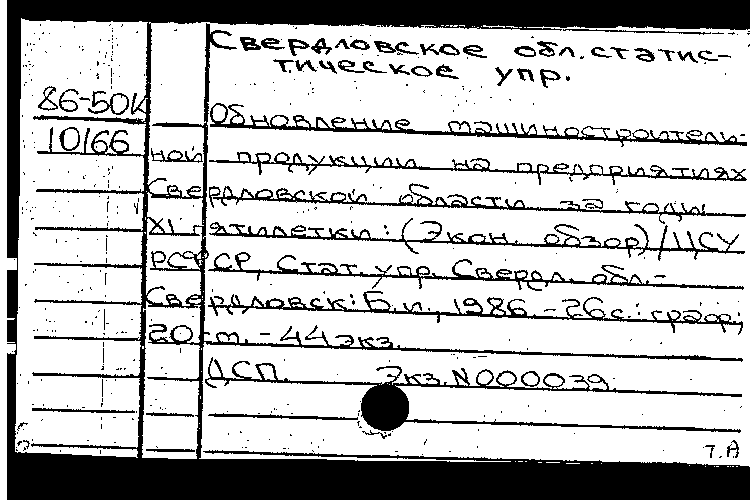 Свердловское обл. статис-
тическое упр.
86-50к
10166
Обновление машиностроитель-
ной продукции на предприятиях
Свердловской области за годы
XI пятилетки: (Экон. обзор) / ЦСУ
РСФСР, Стат. упр. Свердл. обл.-
Свердловск: Б.и., 1986.-26с.: граф.;
20 см. - 44 экз.
ДСП. Экз. N000039.
т. А